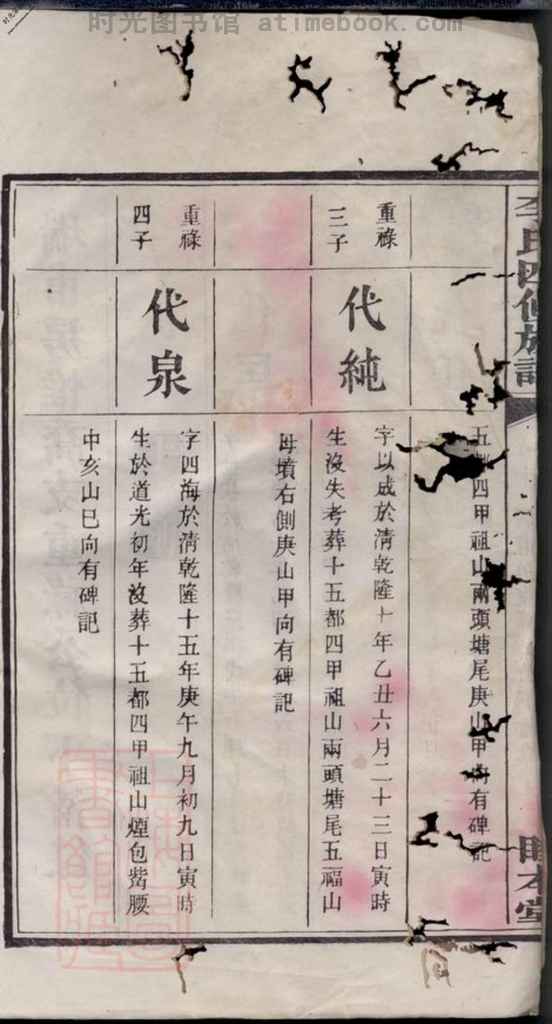 时光图书馆 atimebook.com
李氏四修族譜
五 四甲祖山兩頭塘尾庚山甲向有碑記
重祿
三子
代純
字以成於清乾隆十年乙丑六月二十三日寅時
生沒失考葬十五都四甲祖山兩頭塘尾五福山
母墳右側庚山甲向有碑記
重祿
四子
代泉
字四海於清乾隆十五年庚午九月初九日寅時
生於道光初年沒葬十五都四甲祖山煙包嵴腰
中亥山巳向有碑記
本堂